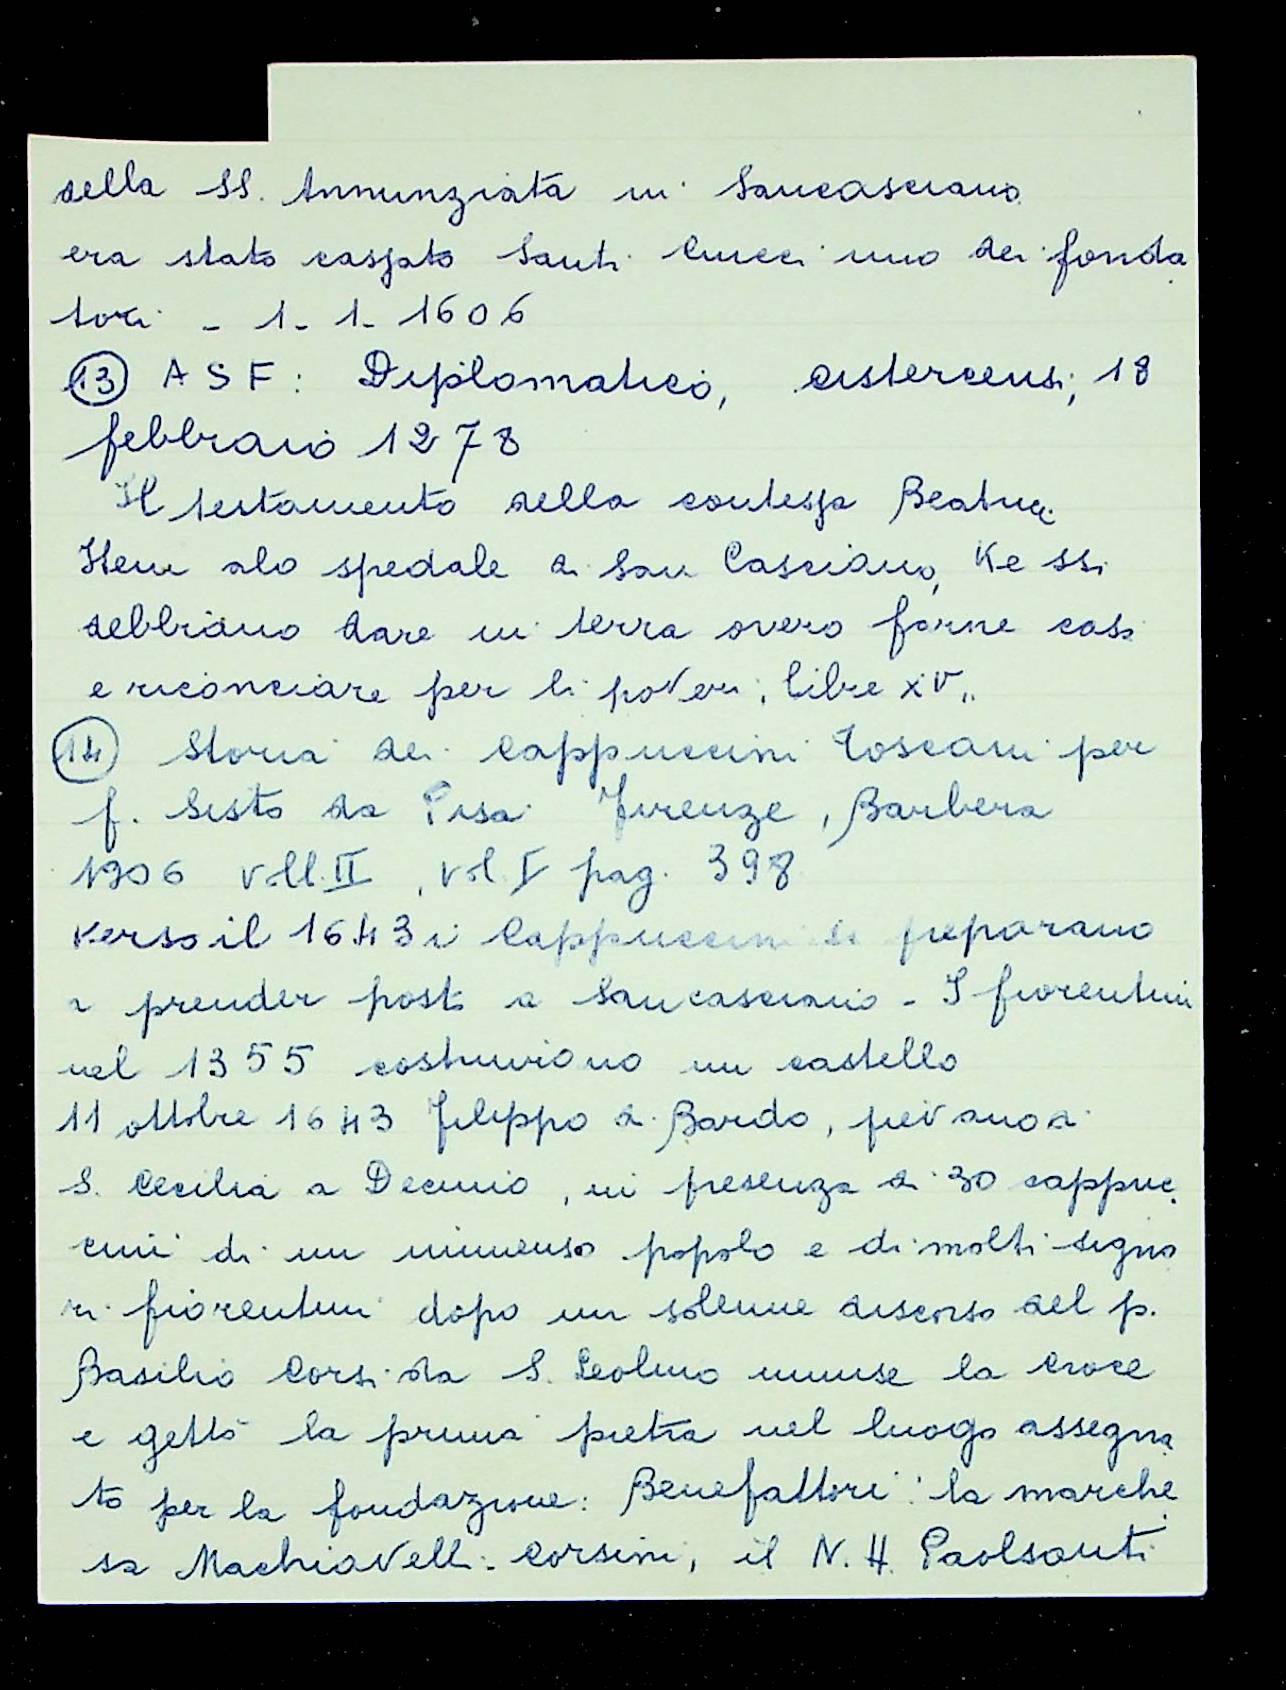 della SS. Annunziata in Sancasciano
era stato cassato Santi Cucci uno dei fonda
tori - 1-1-1606
(13) ASF: Diplomatico, cistercensi, 18
febbraio 1278
Il testamento della contessa Beatrice
Item alo spedale di San Casciano, Ke ssi
debbiano dare in terra overo farne casa
e riconciare per li poveri, libre XV,,
(14) Storia dei Cappuccini Toscani per
f. Sisto da Pisa Firenze, Barbera
1906 voll. II, vol. I pag. 398
verso il 1643 i Cappuccini si preparano
a prender posto a Sancasciano - I fiorentini
nel 1355 costruirono un castello
11 ottobre 1643 Filippo di Bardo, pievano di
S. Cecilia a Decimo, in presenza di 30 cappuc
cini di un immenso popolo e di molti signo
ri fiorentini dopo un solenne discorso del p.
Basilio Corsi da S. Leolino la croce
e gettò la prima pietra nel luogo assegna
to per la fondazione: Benefattori: la marche
sa Machiavelli-Corsini, il N.H. Paolsanti